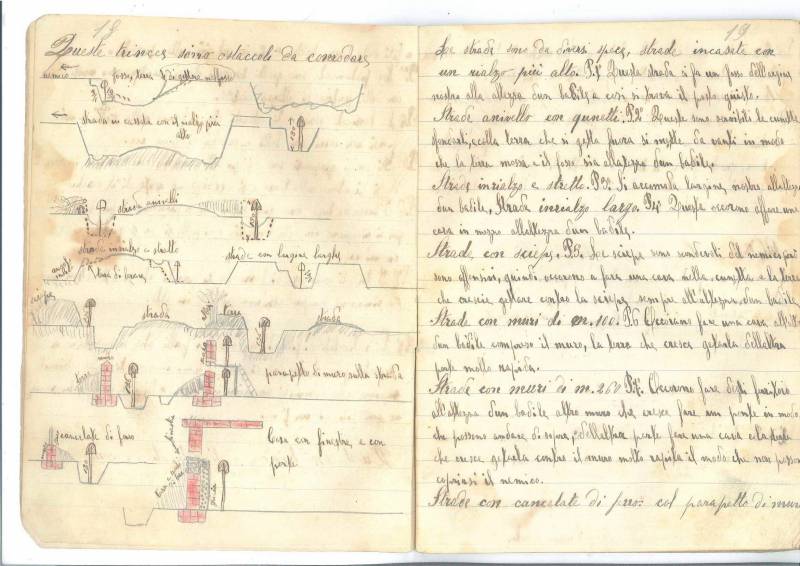 18
Queste trincee sono ostaccoli da comodare
nemico fosso, terra di gettare nel fosso
strada in cassata con il rialzo più
alto
strada anivelli
strada inrialzo e stretto
strade con largine larghe
terra di
siepe
strada
terra
strada
muro
terra
parapetto di muro sulla strada
cancelate di ferro
Casa con finestre e con
porte
19
Le strade sono da diversi speces, strade incasate con
un rialzo più alto. P.1° Questa strada si fa un fosso dell'argine
nostro alla altezza d'un badile e così si trova il posto giusto.
Strade anivello con qunetti. P.2° Queste sono le cunette
e colla terra che si getta fuora si mette da vanti in modo
che la terra mossa e il fosso sia all'altezza d'un badile.
Strade inrialzo e stretto. P.3° Si accomoda l'argine nostro all'altezza
d'un badile, Strada inrialzo largo. P.4° Queste occorono una
casa in mezzo all'altezza d'un badile.
Strade con sciepe. P.5° Le sciepe sono
sono offensivi, quindi occorono a fare una casa nella cunetta e la terra
che cresce gettare contro la sciepe sempre all'altezza d'un badile
Strade con muri di m. 1.00. P.6 Occorano fare una casa
d'un badile compreso il muro, la terra che cresce gettarla dell'altra
parte molto rapida.
Strade con muri di m. 2.60 P.7. Occorono fare
all'altezza d'un badile altro muro che cresce fare un ponte in modo
che possono andare di sopra, e dell'altra parte fare una casa e la
che cresce gettarla contro il muro molto rapida il modo che non posson
copriasi il nemico.
Strade con cancelate di ferro col parapetto di muro